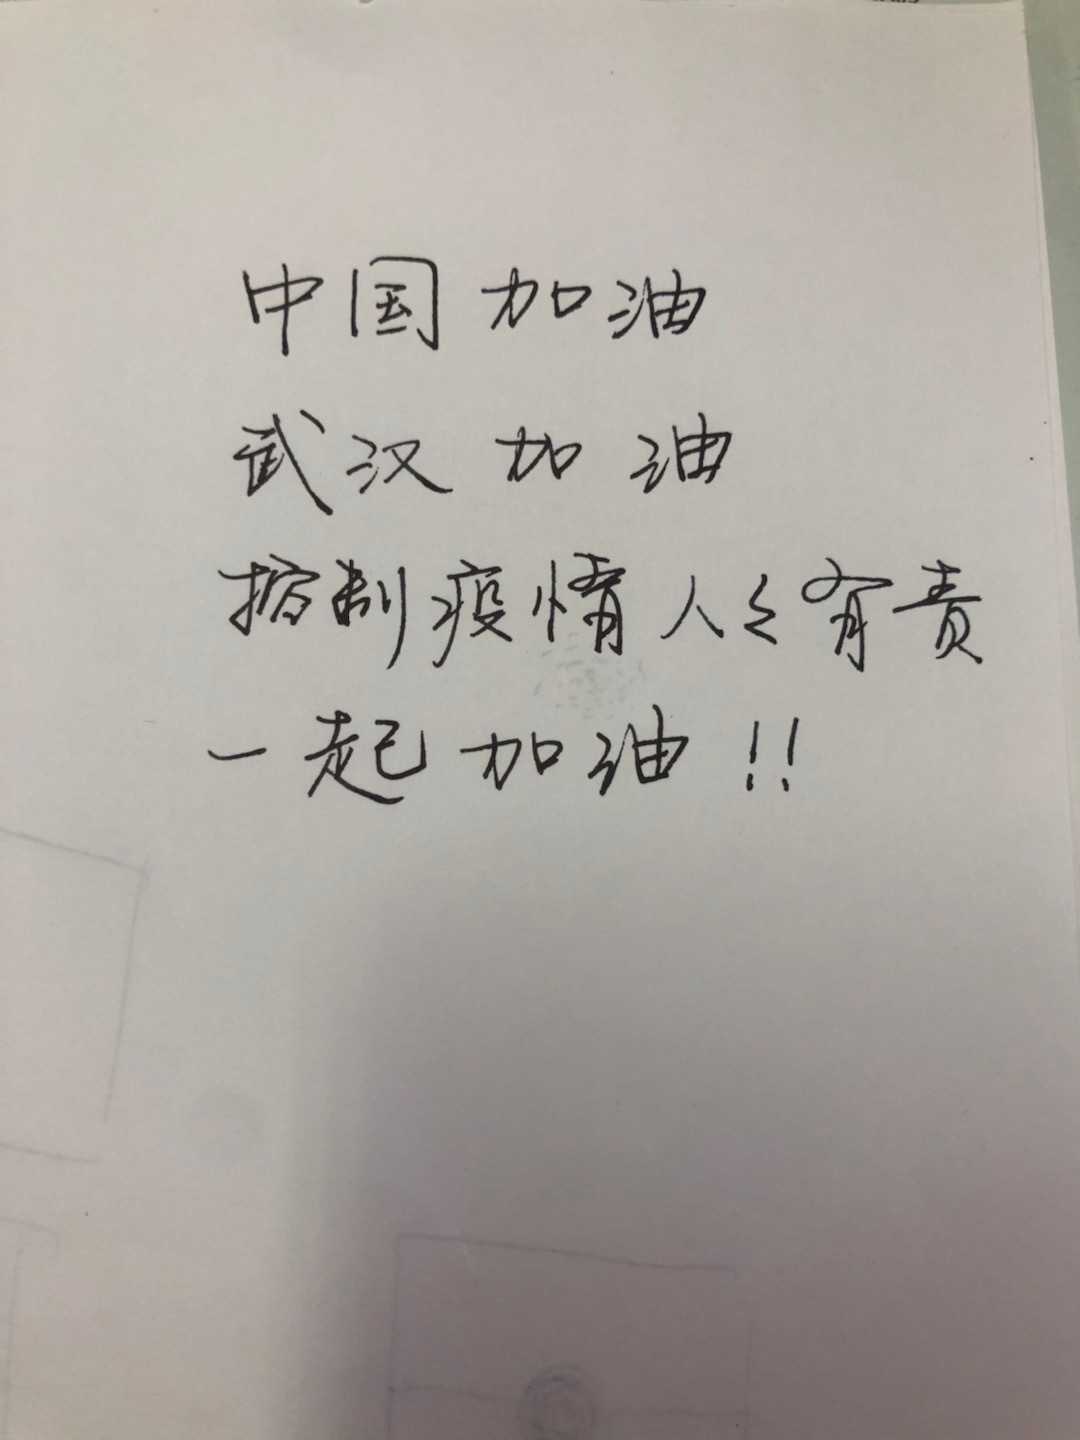 中国加油
武汉加油
控制疫情人々有责
一起加油!!